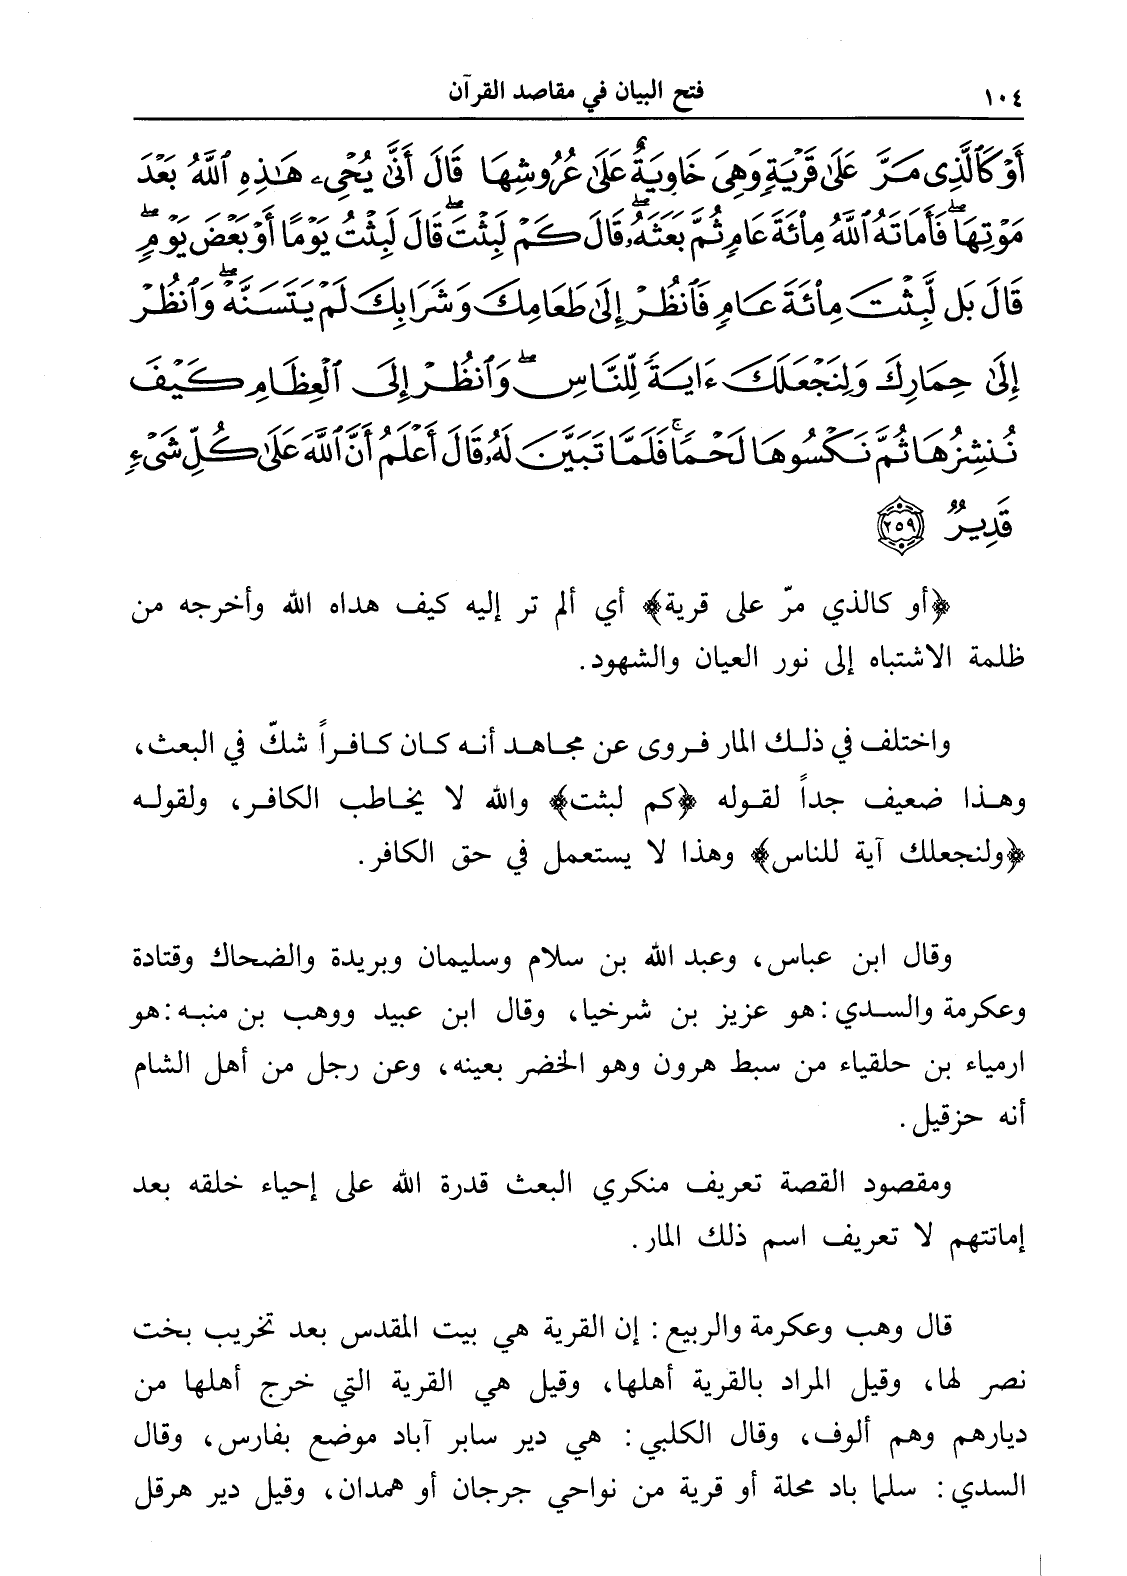 ١٠٤ فتح البيان في مقاصد القرآن
أَوْ كَٱلَّذِى مَرَّ عَلَىٰ قَرْيَةٍ وَهِىَ خَاوِيَةٌ عَلَىٰ عُرُوشِهَا قَالَ أَنَّىٰ يُحْىِۦ هَٰذِهِ ٱللَّهُ بَعْدَ
مَوْتِهَا ۖ فَأَمَاتَهُ ٱللَّهُ مِا۟ئَةَ عَامٍ ثُمَّ بَعَثَهُۥ ۖ قَالَ كَمْ لَبِثْتَ ۖ قَالَ لَبِثْتُ يَوْمًا أَوْ بَعْضَ يَوْمٍ ۖ
قَالَ بَل لَّبِثْتَ مِا۟ئَةَ عَامٍ فَٱنظُرْ إِلَىٰ طَعَامِكَ وَشَرَابِكَ لَمْ يَتَسَنَّهْ ۖ وَٱنظُرْ
إِلَىٰ حِمَارِكَ وَلِنَجْعَلَكَ ءَايَةً لِّلنَّاسِ ۖ وَٱنظُرْ إِلَى ٱلْعِظَامِ كَيْفَ
نُنشِزُهَا ثُمَّ نَكْسُوهَا لَحْمًا ۚ فَلَمَّا تَبَيَّنَ لَهُۥ قَالَ أَعْلَمُ أَنَّ ٱللَّهَ عَلَىٰ كُلِّ شَىْءٍ
قَدِيرٌ ٢٥٩
﴿أو كالذي مرّ على قرية﴾ أي ألم تر إليه كيف هداه الله وأخرجه من
ظلمة الاشتباه إلى نور العيان والشهود.
واختلف في ذلك المار فروى عن مجاهد أنه كان كافراً شكّ في البعث،
وهذا ضعيف جداً لقوله ﴿كم لبثت﴾ والله لا يخاطب الكافر، ولقوله
﴿ولنجعلك آية للناس﴾ وهذا لا يستعمل في حق الكافر.
وقال ابن عباس، وعبد الله بن سلام وسليمان وبريدة والضحاك وقتادة
وعكرمة والسدي: هو عزيز بن شرخيا، وقال ابن عبيد ووهب بن منبه: هو
ارمياء بن حلقياء من سبط هرون وهو الخضر بعينه، وعن رجل من أهل الشام
أنه حزقيل.
ومقصود القصة تعريف منكري البعث قدرة الله على إحياء خلقه بعد
إماتتهم لا تعريف اسم ذلك المار.
قال وهب وعكرمة والربيع: إن القرية هي بيت المقدس بعد تخريب بخت
نصر لها، وقيل المراد بالقرية أهلها، وقيل هي القرية التي خرج أهلها من
ديارهم وهم ألوف، وقال الكلبي: هي دير سابر آباد موضع بفارس، وقال
السدي: سلما باد محلة أو قرية من نواحي جرجان أو همدان، وقيل دير هرقل